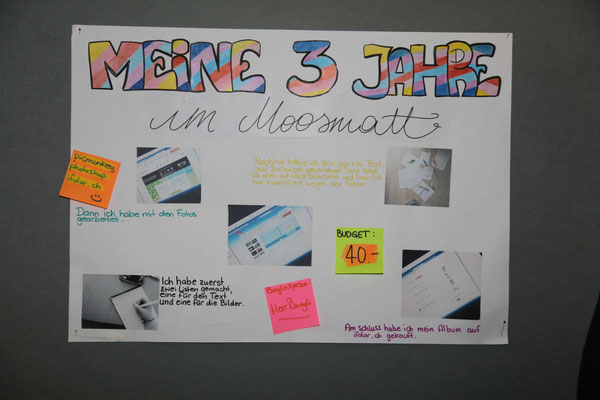 MEiNE 3 JAHRE
im Moosmatt
picmonkey
photoshop
ifolor.ch
Nachher habe ich den ganzen Text
auf
geschrieben. Dann habe
ich alles auf
und
wegen den Fehler.
Dann ich habe mit den Fotos
gearbeitet.
BUDGET:
40.-
Ich habe zuerst
zwei Listen gemacht,
eine für den Text
und eine für die Bilder.
Begleitperson
Herr
Am schluss habe ich mein Album auf
ifolor.ch gekauft.